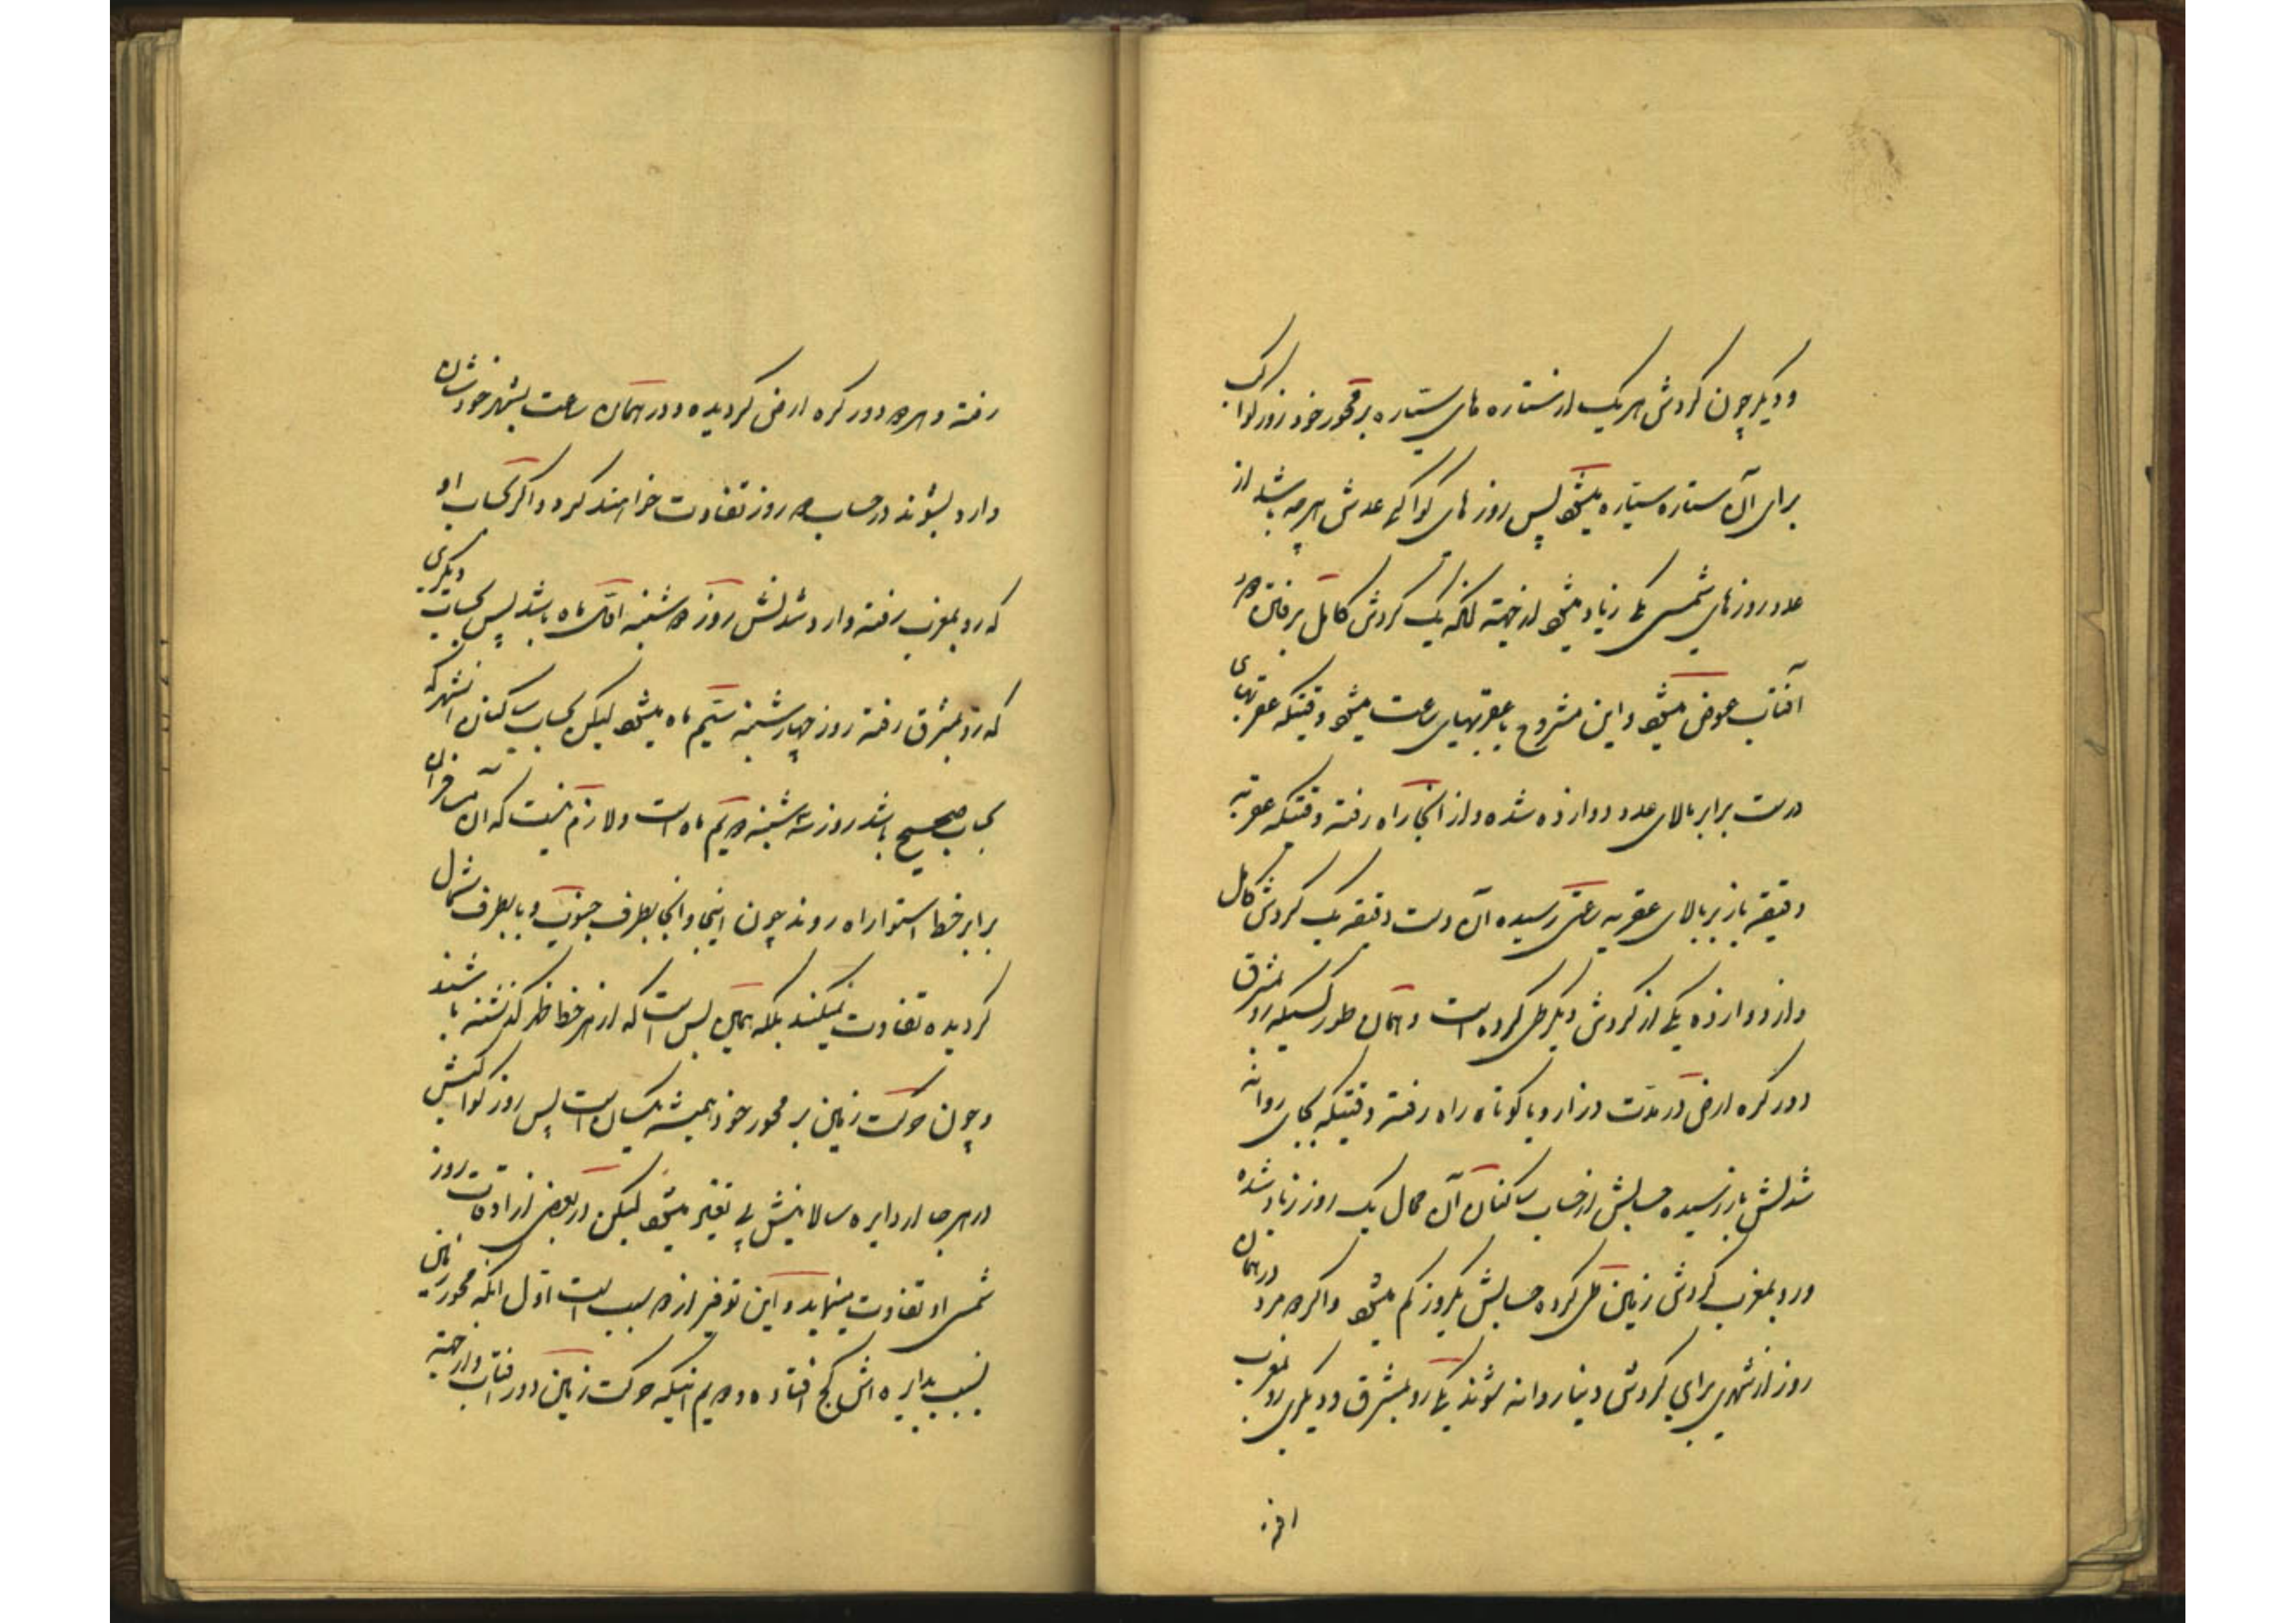 و دیگر چون گردش هر یک از ستاره های سیتاره بر محور خود روز کواکب
برای آن ستاره سیتاره میشود پس روزهای کواکبی عدش هرچه باشد از
عدد روزهای شمسی یکی زیاد میشود از جهته آنکه یک گردش کامل برفتن دور
آفتاب عوض میشود و این مشروح با عقربهای ساعت میشود وقتیکه عقربهای
درست برابر بالای عدد دوازده شده و از آنجا راه رفته وقتیکه عقربه
دقیقه باز بر بالای عقربه ساعتی رسیده آن وقت دقیقه یک گردش کامل
و از دوازده یکی از گردش دیگر طی کرده است و همان طور کسیکه رو بمشرق
دور کره ارض در مدّت دراز و یا کوتاه راه رفته وقتیکه بجای روانه
شدنش باز رسیده حسابش از حساب ساکنان آن محال یک روز زیاد شده
و رو بمغرب گردش زمین طی کرده حسابش یکروز کم میشود و اگر دو مرد در همان
روز از شهری برای گردش دنیا روانه شوند یکی رو بمشرق و دیگری رو بمغرب
رفته و هر دو دور کره ارض گردیده و در همان ساعت بشهر خودشان
وارد بشوند در حساب دو روز تفاوت خواهند کرد و اگر بحساب او
که رو بمغرب رفته وارد شدنش روز دوشنبه اوّل ماه باشد پس بحساب دیگری
که رو بمشرق رفته روز چهارشنبه سیّم ماه میشود لیکن بحساب ساکنان آنشهر که
بحساب صحیح باشد روز سه شنبه دویم ماه است و لازم نیست که آن مسافران
برابر خط استوا راه روند چون اینجا و آنجا بطرف جنوب و یا بطرف شمال
گردیده تفاوت نمیکند بلکه همین بس است که از هر خط ظهر گذشته باشند
و چون حرکت زمین بر محور خود همیشه یکسان است پس روز کواکبش
در هر جا از دایره سالانیش بی تغیر میشود لیکن در بعضی از اوقات روز
شمسی او تفاوت مینماید و این توفیر از دو سبب است اوّل آنکه محور زمین
نسبت بدایره اش کج افتاده و دویم اینکه حرکت زمین دور آفتاب و از جهته